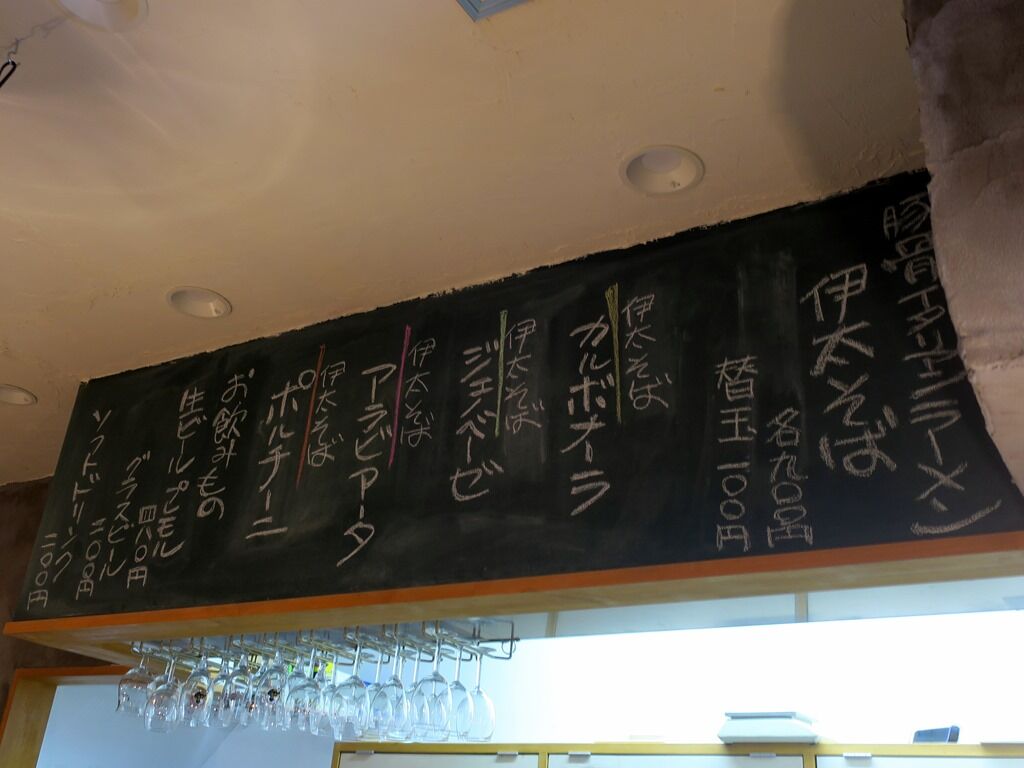 豚骨イタリアンラーメン)
伊太そば
各九〇〇円
替玉 一〇〇円
伊太そば
カルボナーラ
伊太そば
ジェノベーゼ
伊太そば
アラビアータ
伊太そば
ポルチーニ
お飲みもの
生ビールプレモル
四八〇円
グラスビール
二〇〇円
ソフトドリンク
二〇〇円